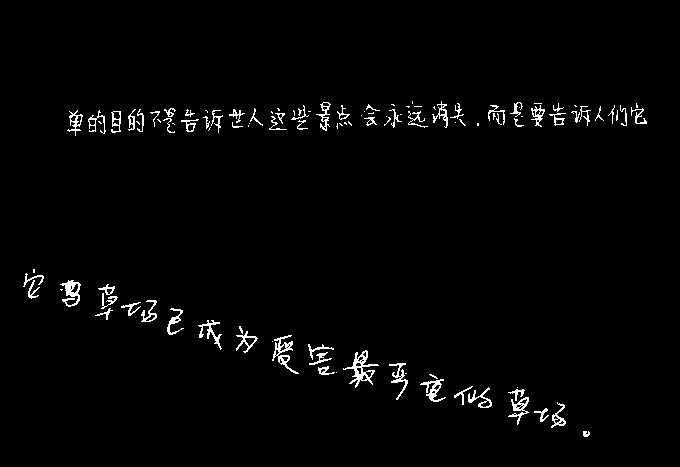 单的目的不是告诉世人这些景点会永远消失,而是要告诉人们它
它当草场已成为受害最严重的草场。